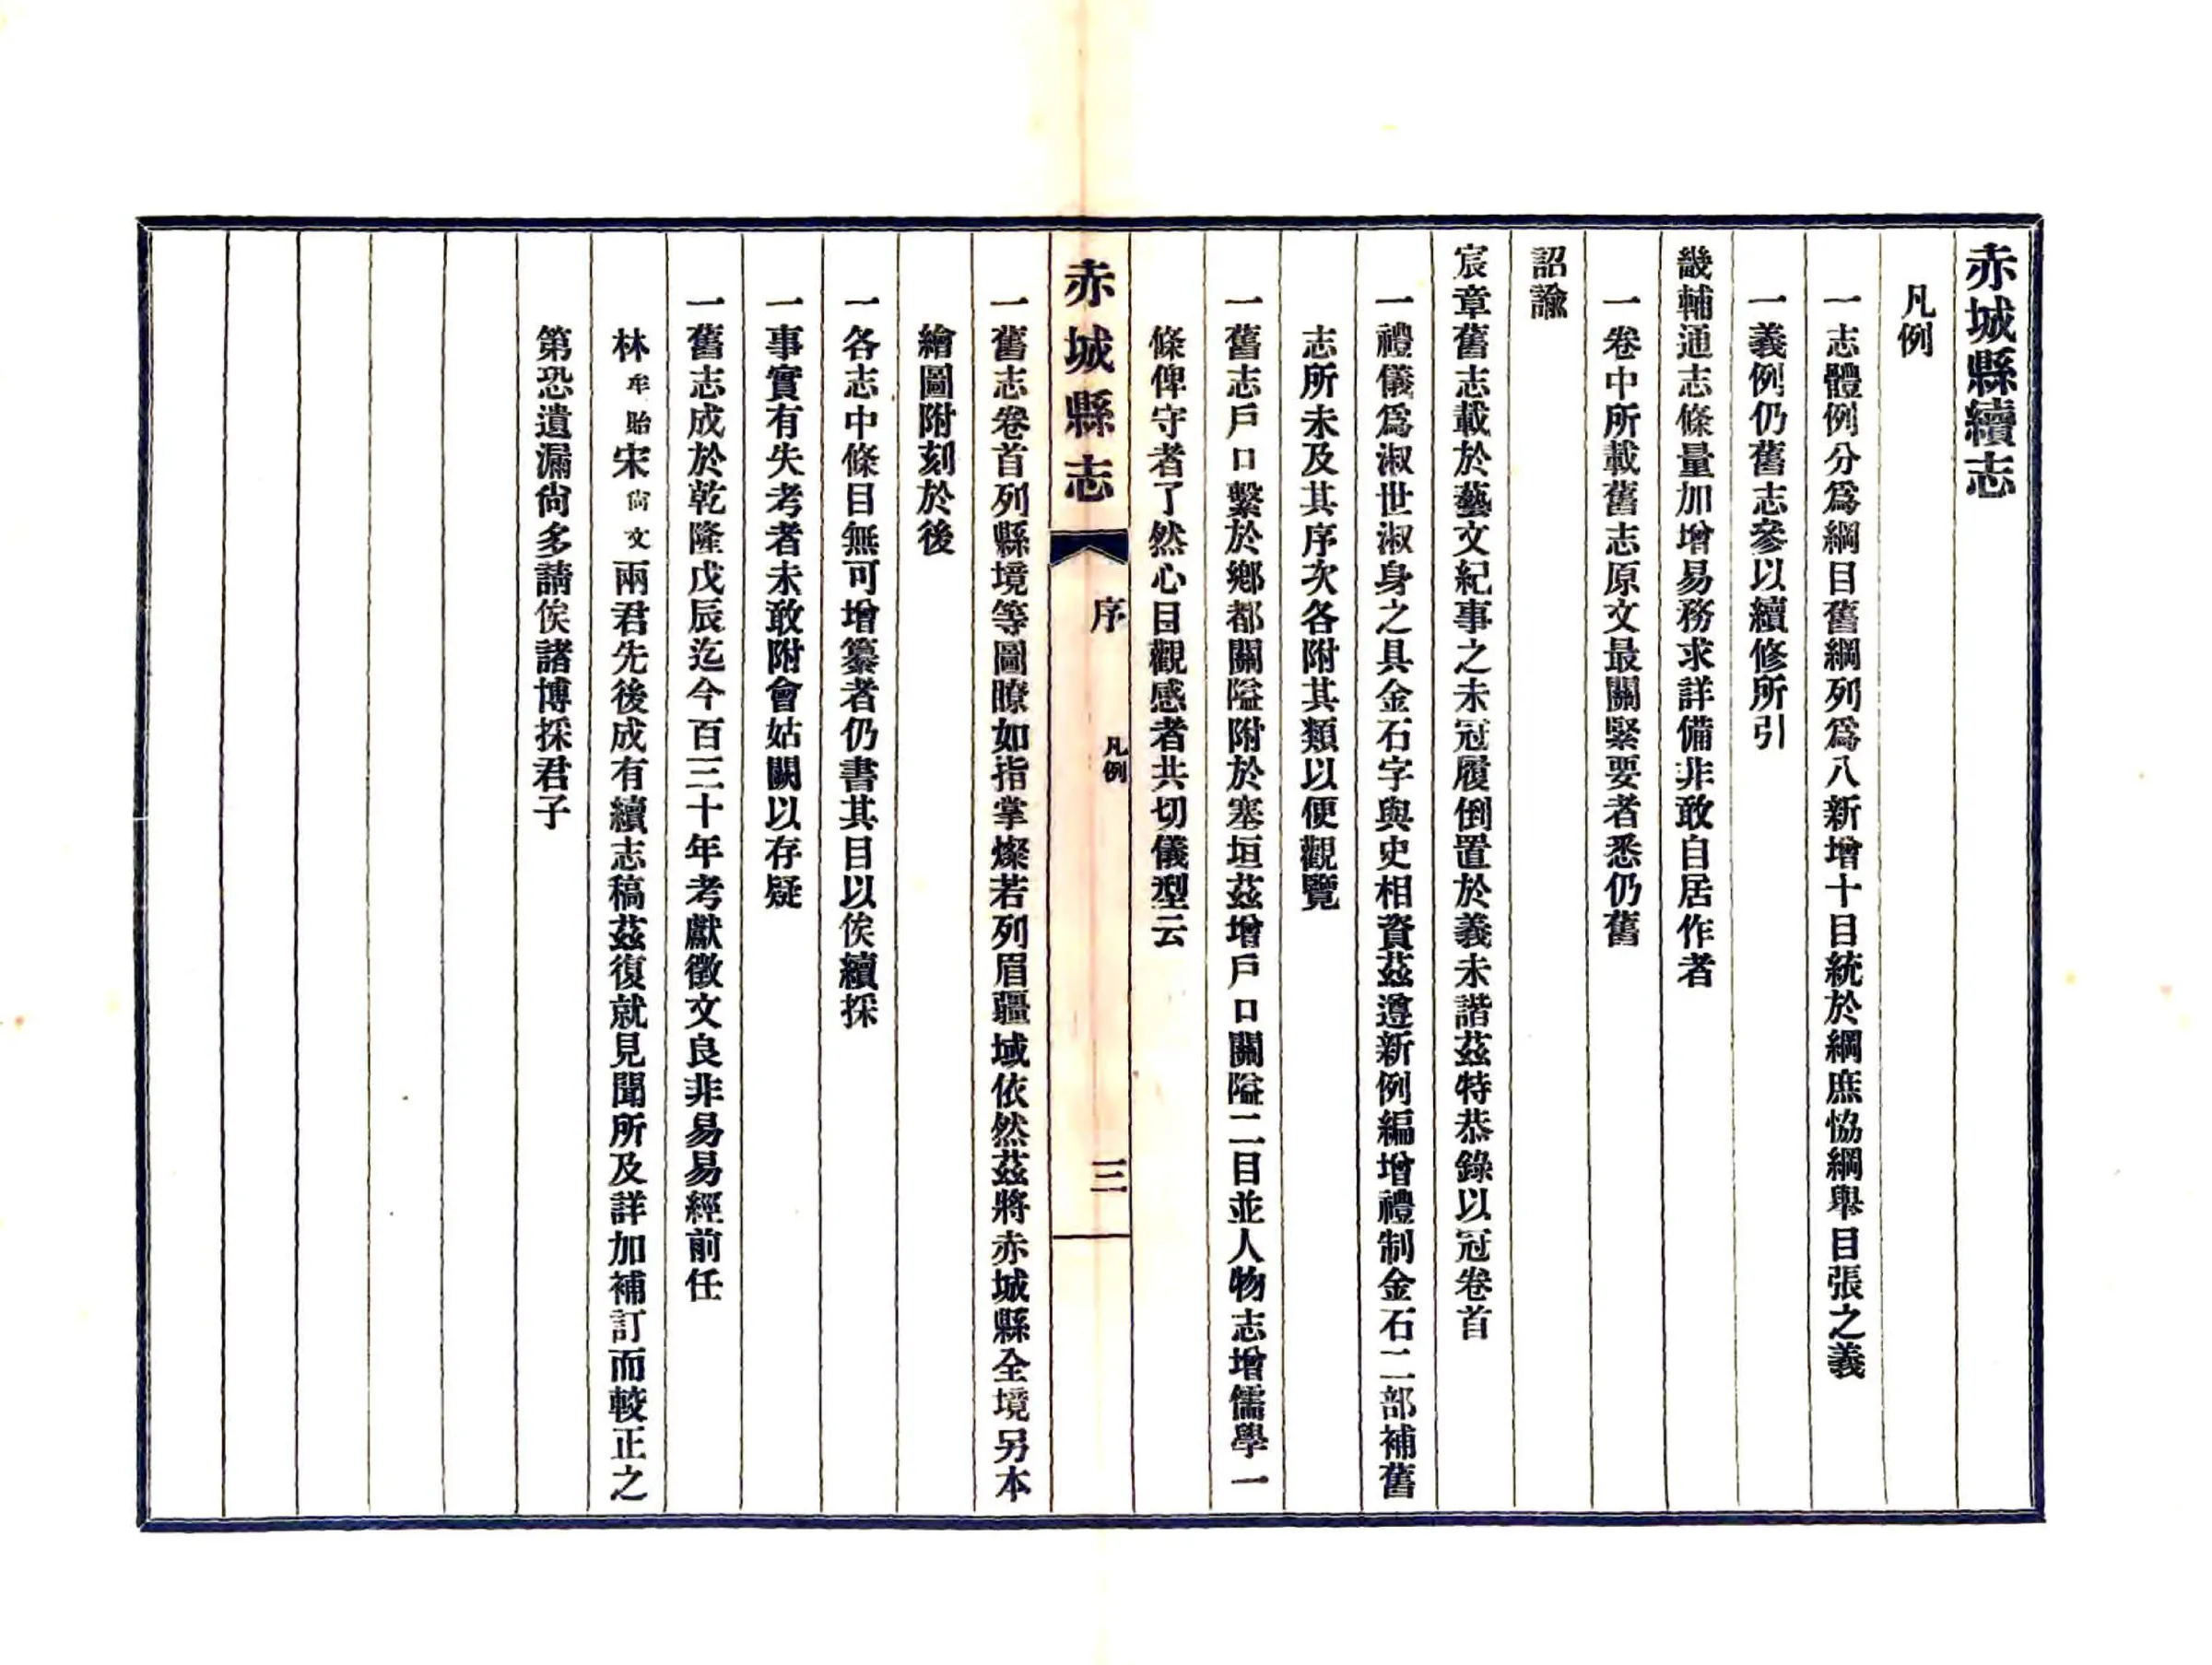 赤城縣續志
凡例
一志體例分爲綱目舊綱列爲八新增十目統於綱庶恊綱舉目張之義
一義例仍舊志參以續修所引
畿輔通志條量加增易務求詳備非敢自居作者
一卷中所載舊志原文最關緊要者悉仍舊
詔諭
宸章舊志載於藝文紀事之末冠履倒置於義未諧茲特恭錄以冠卷首
一禮儀爲淑世淑身之具金石字與史相資茲遵新例編增禮制金石二部補舊
志所未及其序次各附其類以便觀覽
一舊志戶口繫於鄉都關隘附於塞垣茲增戶口關隘二目並人物志增儒學一
條俾守者了然心目觀感者共切儀型云
赤城縣志 序 凡例 三
一舊志卷首列縣境等圖瞭如指掌燦若列眉疆域依然茲將赤城縣全境另本
繪圖附刻於後
一各志中條目無可增纂者仍書其目以俟續採
一事實有失考者未敢附會姑闕以存疑
一舊志成於乾隆戊辰迄今百三十年考獻徵文良非易易經前任
林牟貽宋尙文兩君先後成有續志稿茲復就見聞所及詳加補訂而較正之
第恐遺漏尙多請俟諸博採君子